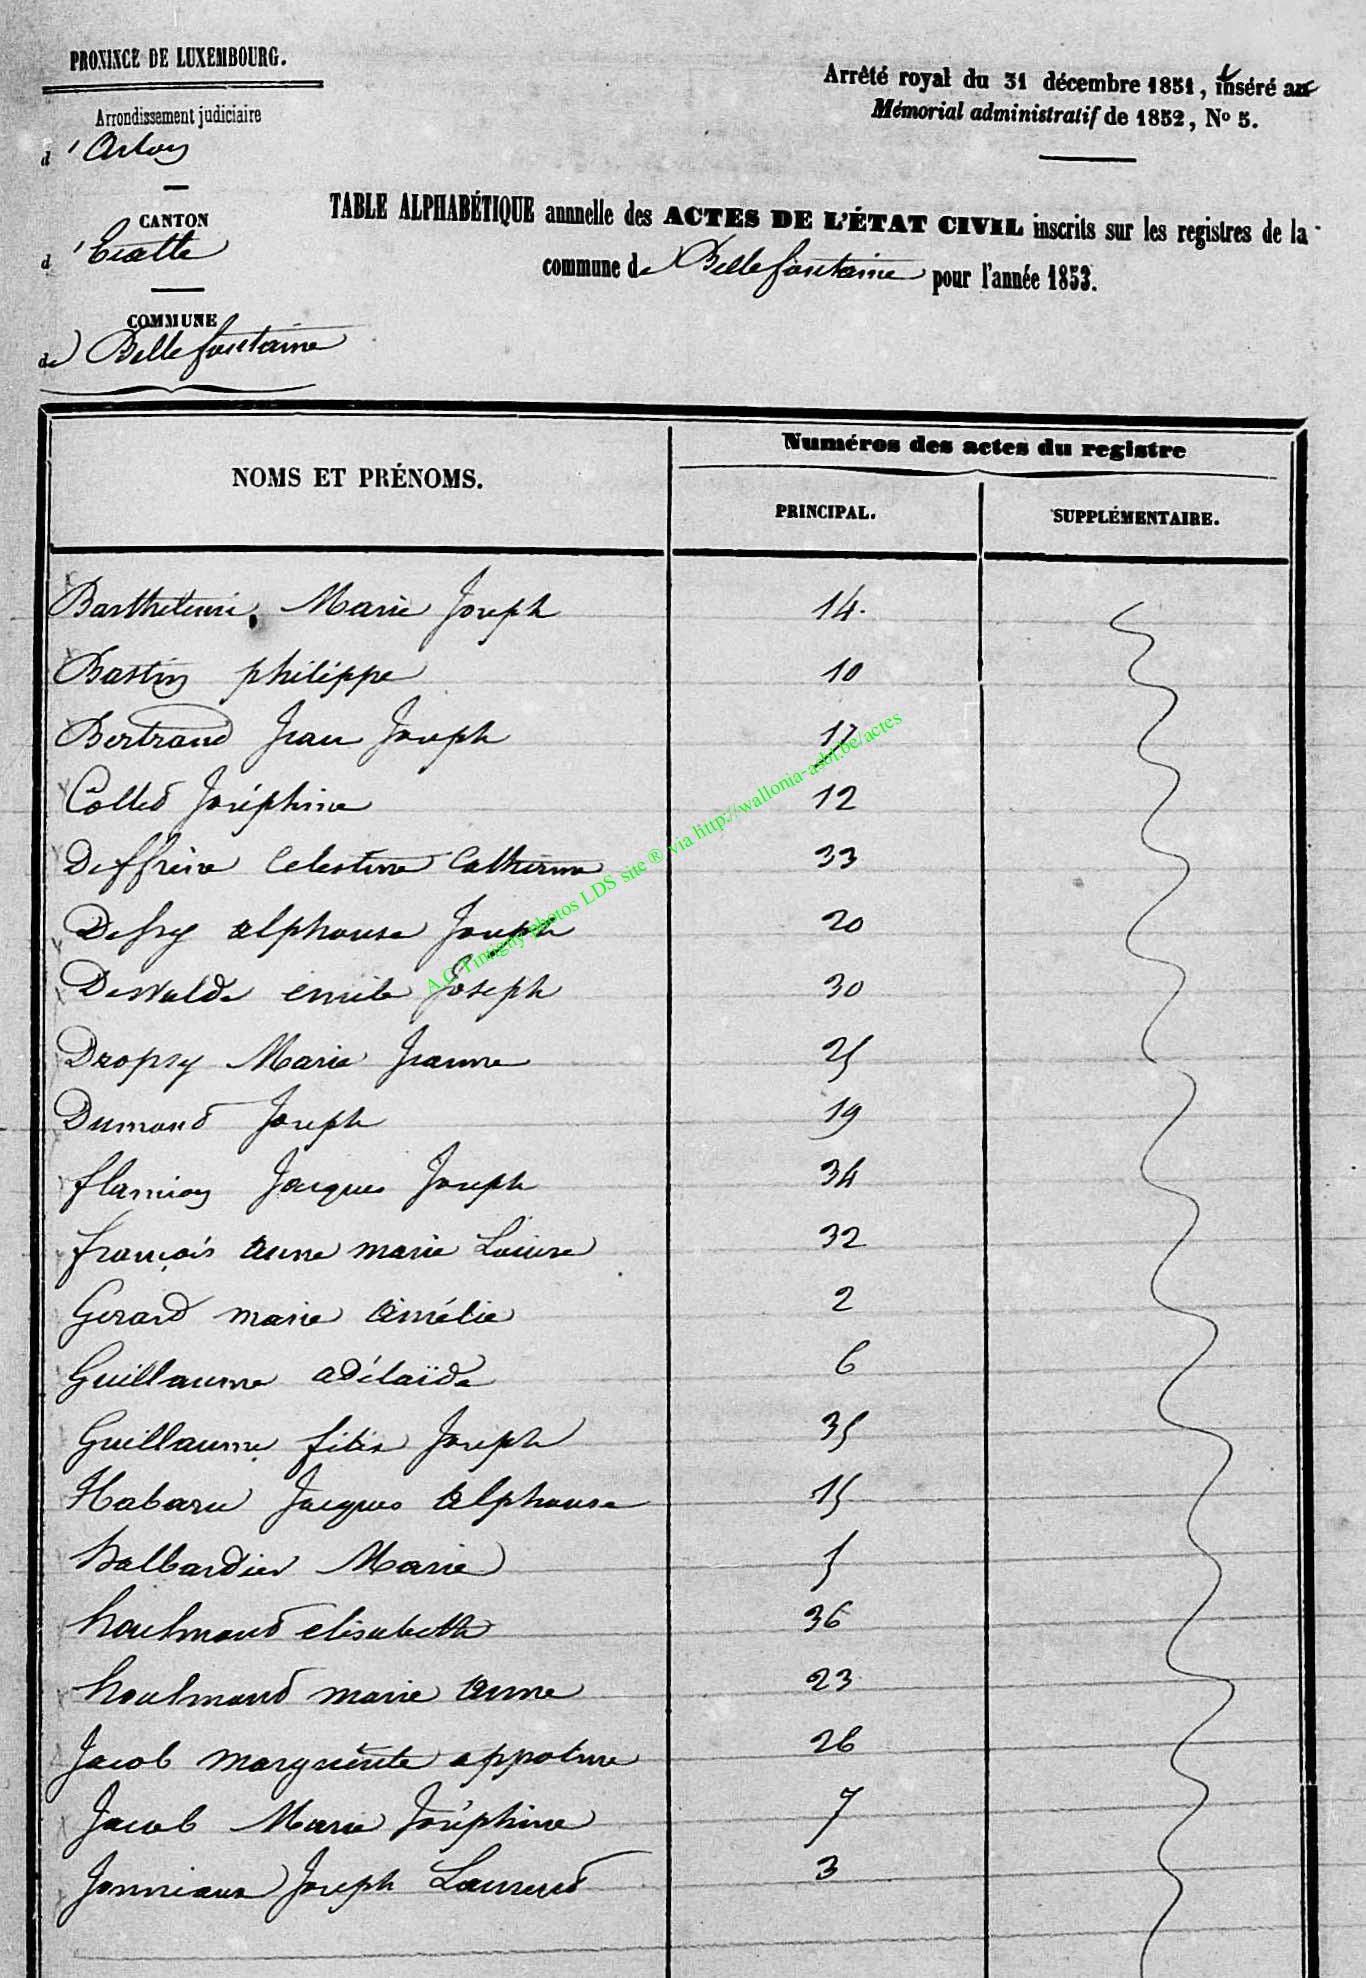 PROVINCE DE LUXEMBOURG.
Arrêté royal du 31 décembre 1851, inséré au
Mémorial administratif de 1852, No 5.
Arrondissement judiciaire
d'Arlon
CANTON
d'Etalle
COMMUNE
de Bellefontaine
TABLE ALPHABÉTIQUE annnelle des ACTES DE L'ÉTAT CIVIL inscrits sur les registres de la
commune de Bellefontaine pour l'année 1853.
NOMS ET PRÉNOMS.
Numéros des actes du registre
PRINCIPAL.
SUPPLÉMENTAIRE.
Barthelemi, Marie Joseph 14.
Bastin philippe 10
Bertrand Jean Joseph 17
Colled Joséphine 12
Deffrène Celestine Catherine 33
Defsy alphonse Joseph 20
Dewalde émile Joseph 30
Dropsy Marie Jeanne 25
Dumond Joseph 19
flamion Jacques Joseph 34
françois anne marie Louise 32
Gerard marie Amélie 2
Guillaume adélaïde 6
Guillaume félix Joseph 35
Habaru Jacques Alphonse 15
halbardier Marie 5
houlmond elisabeth 36
houlmond marie anne 23
Jacob marguerite appoline 26
Jacob Marie Joséphine 7
Jonniaux Joseph Laurend 3
A.C. Tintigny photos LDS site ® via http://wallonia-asbl.be/actes